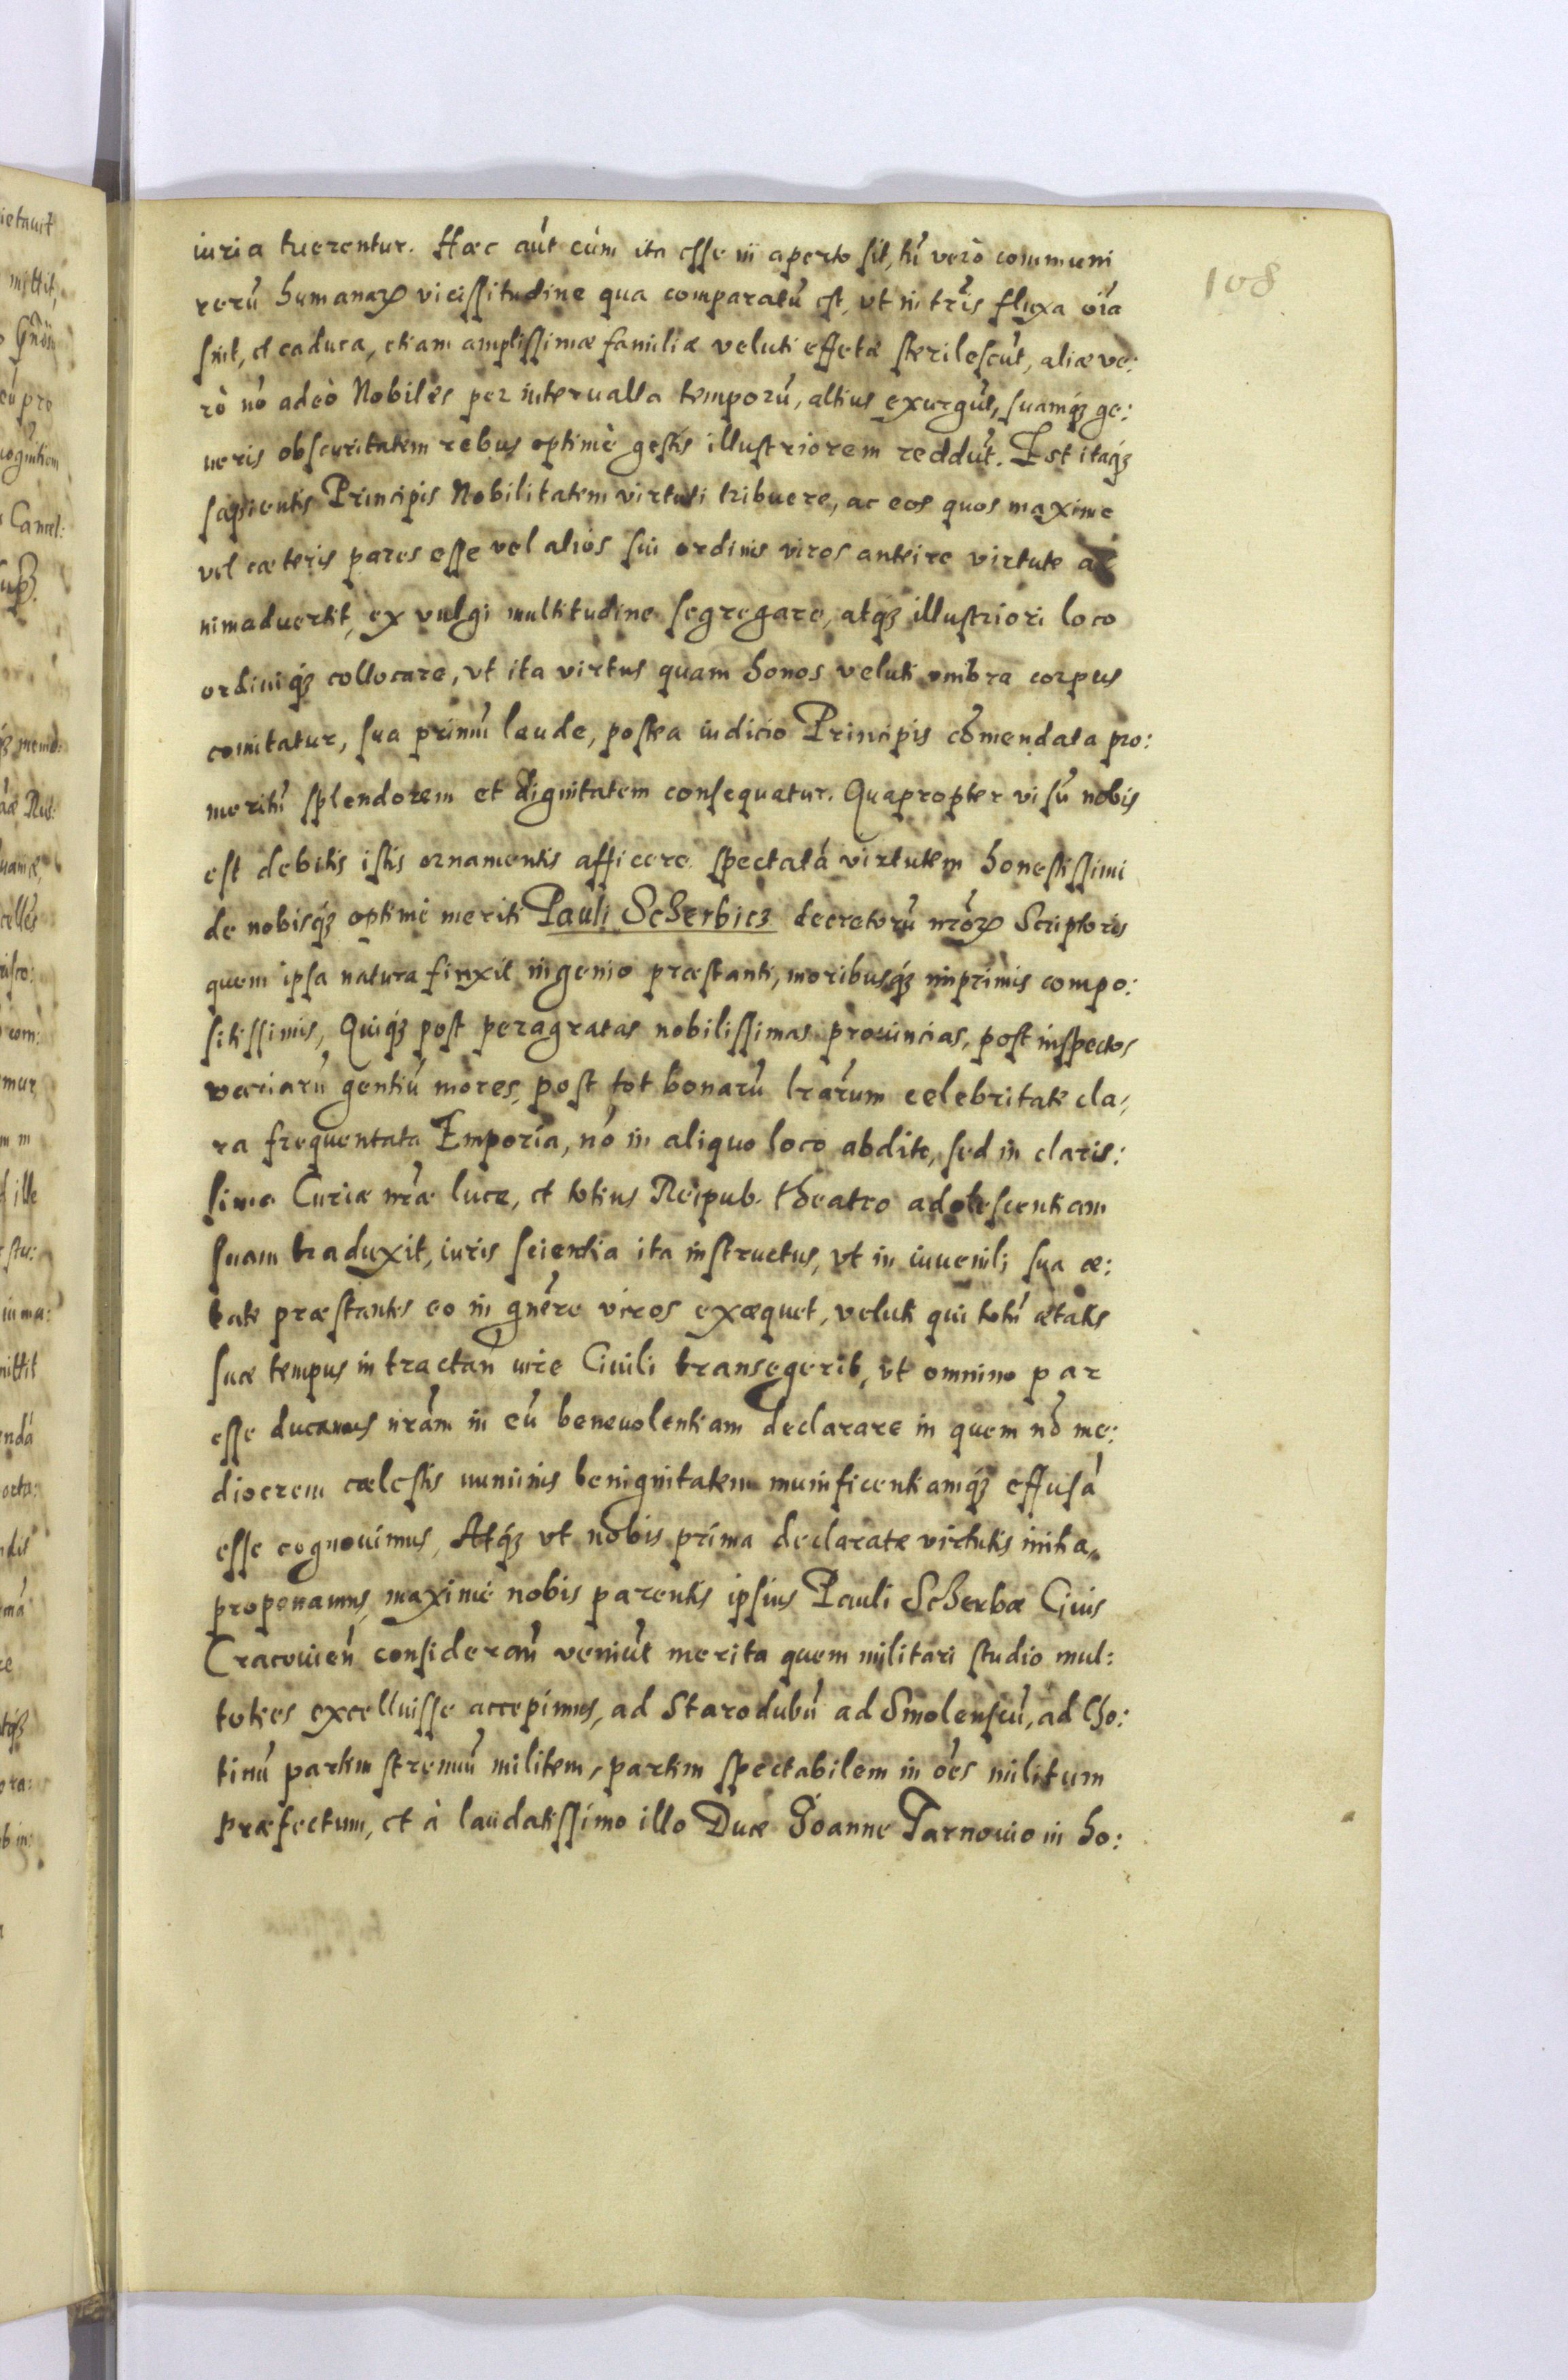 108
iuria tuerentur. Haec aut́ cùm ita esse in aperto sit, tũ verò communi
rerũ humanaꝝ vicissitudine qua comparatũ est, vt in tr̃is fluxa oĩa
sint, et caduca, etiam amplissimæ familiæ veluti effetæ sterilescũt, aliæ ve:
rò nõ adeò Nobiles per interualla temporũ, altius exurgũt, suamqꝫ ge:
neris obscuritatem rebus optimè gestis illustriorem reddũt. Est itaqꝫ
sapientis Principis Nobilitatem virtuti tribuere, ac eos quos maxime
vel cæteris pares esse vel alios sui ordinis viros anteire virtute a
nimaduertit, ex vulgi multitudine segregare, atqꝫ illustriori loco
ordiniqꝫ collocare, vt ita virtus quam honos veluti vmbra corpus
comitatur, sua primũ laude, postea iudicio Principis cõmendata pro:
meritũ splendorem et dignitatem consequatur. Quapropter visũ nobis
est debitis istis ornamentis afficere spectatã virtutem honestissimi
de nobisqꝫ optimè meriti Pauli Scherbicz decretorũ nr̃oꝝ Scriptoris
quem ipsa natura finxit ingenio præstanti, moribusqꝫ imprimis compo:
sitissimis, Quiqꝫ post peragratas nobilissimas prouincias, post inspectos
variarũ gentiũ mores, post tot bonarũ lr̃arum celebritate cla:
ra frequentata Emporia, nõ in aliquo loco abdito, sed in claris:
sima Curiæ nr̃æ luce, et totius Reipub. theatro adolescentiam
suam traduxit, iuris scientia ita instructus, vt in iuuenili sua æ:
tate præstantes eo in gñere viros exæquet, veluti qui totũ ætatis
suæ tempus in tractañ iure Ciuili transegerit, vt omnino par
esse ducamus nr̃am in eũ beneuolentiam declarare in quem nõ me:
diocrem cælestis numinis benignitatem munificentiamqꝫ effusã
esse cognouimus, Atqꝫ vt nobis prima declaratæ virtutis initia,
proponamus, maximè nobis parentis ipsius Pauli Scherbæ Ciuis
Cracouieñ considerañ veniũt merita quem militari studio mul:
toties excelluisse accepimus, ad Starodubũ ad Smolenscũ, ad Cho:
tinũ partim strenuũ militem, partim spectabilem in ões militum
præfectum, et à laudatissimo illo Duce Joanne Tarnouio in ho: